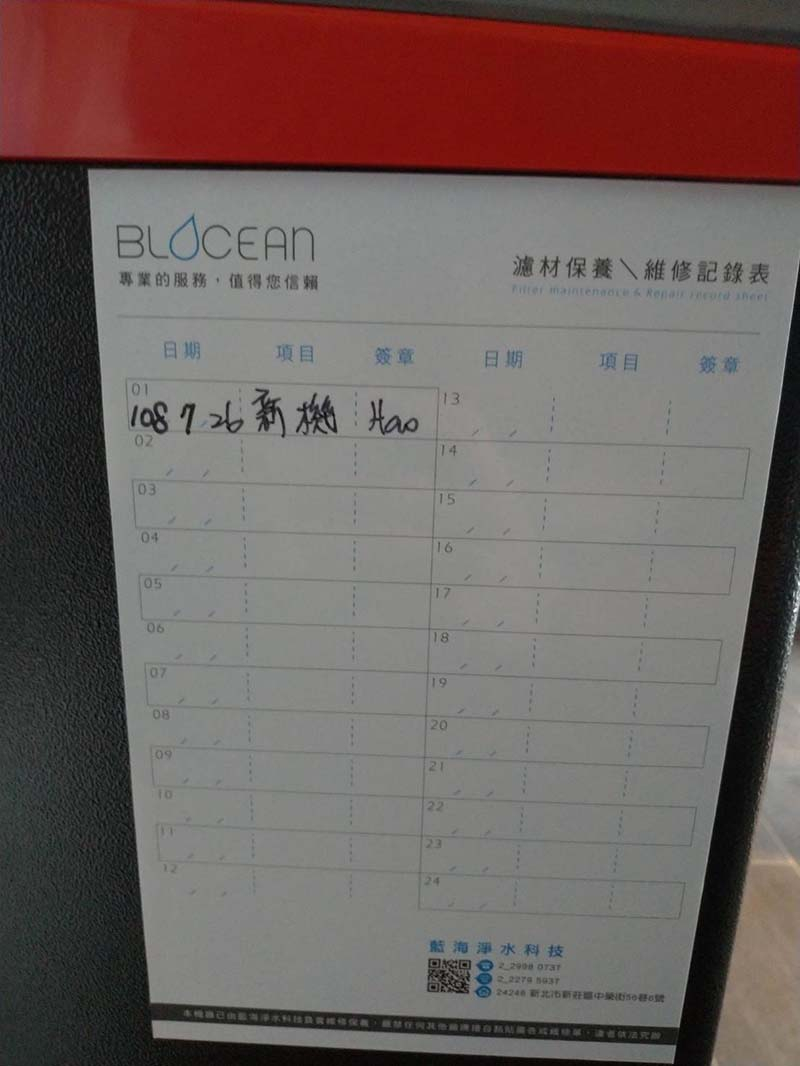 BLOCEAN
專業的服務，值得您信賴
濾材保養＼維修記錄表
Filter maintenance & Repair record sheet
日期 項目 簽章 日期 項目 簽章
01
108 7 26 新機 Hao
02
03
04
05
06
07
08
09
10
11
12
13
14
15
16
17
18
19
20
21
22
23
24
藍海淨水科技
2_2998 0737
2_2279 5937
24248 新北市新莊區中榮街56巷6號
本機器已由藍海淨水科技負責維修保養，嚴禁任何其他廠商擅自黏貼廣告或維修單，違者依法究辦